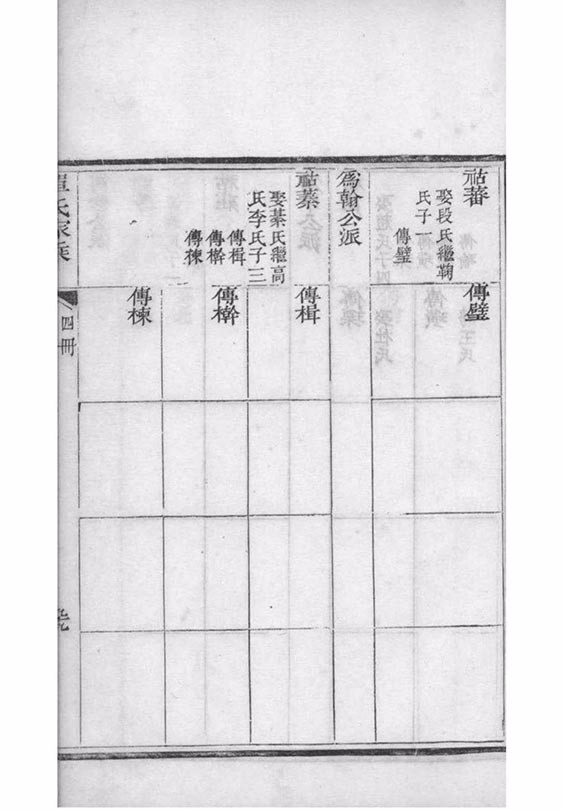 祜蕃
娶段氏繼鞠
氏子一
傳璧
傳璧
爲翰公派
祜蓁
娶綦氏繼高
氏李氏子三
傳楫
傳檊
傳棟
傳楫
傳檊
傳棟
氏家
四冊